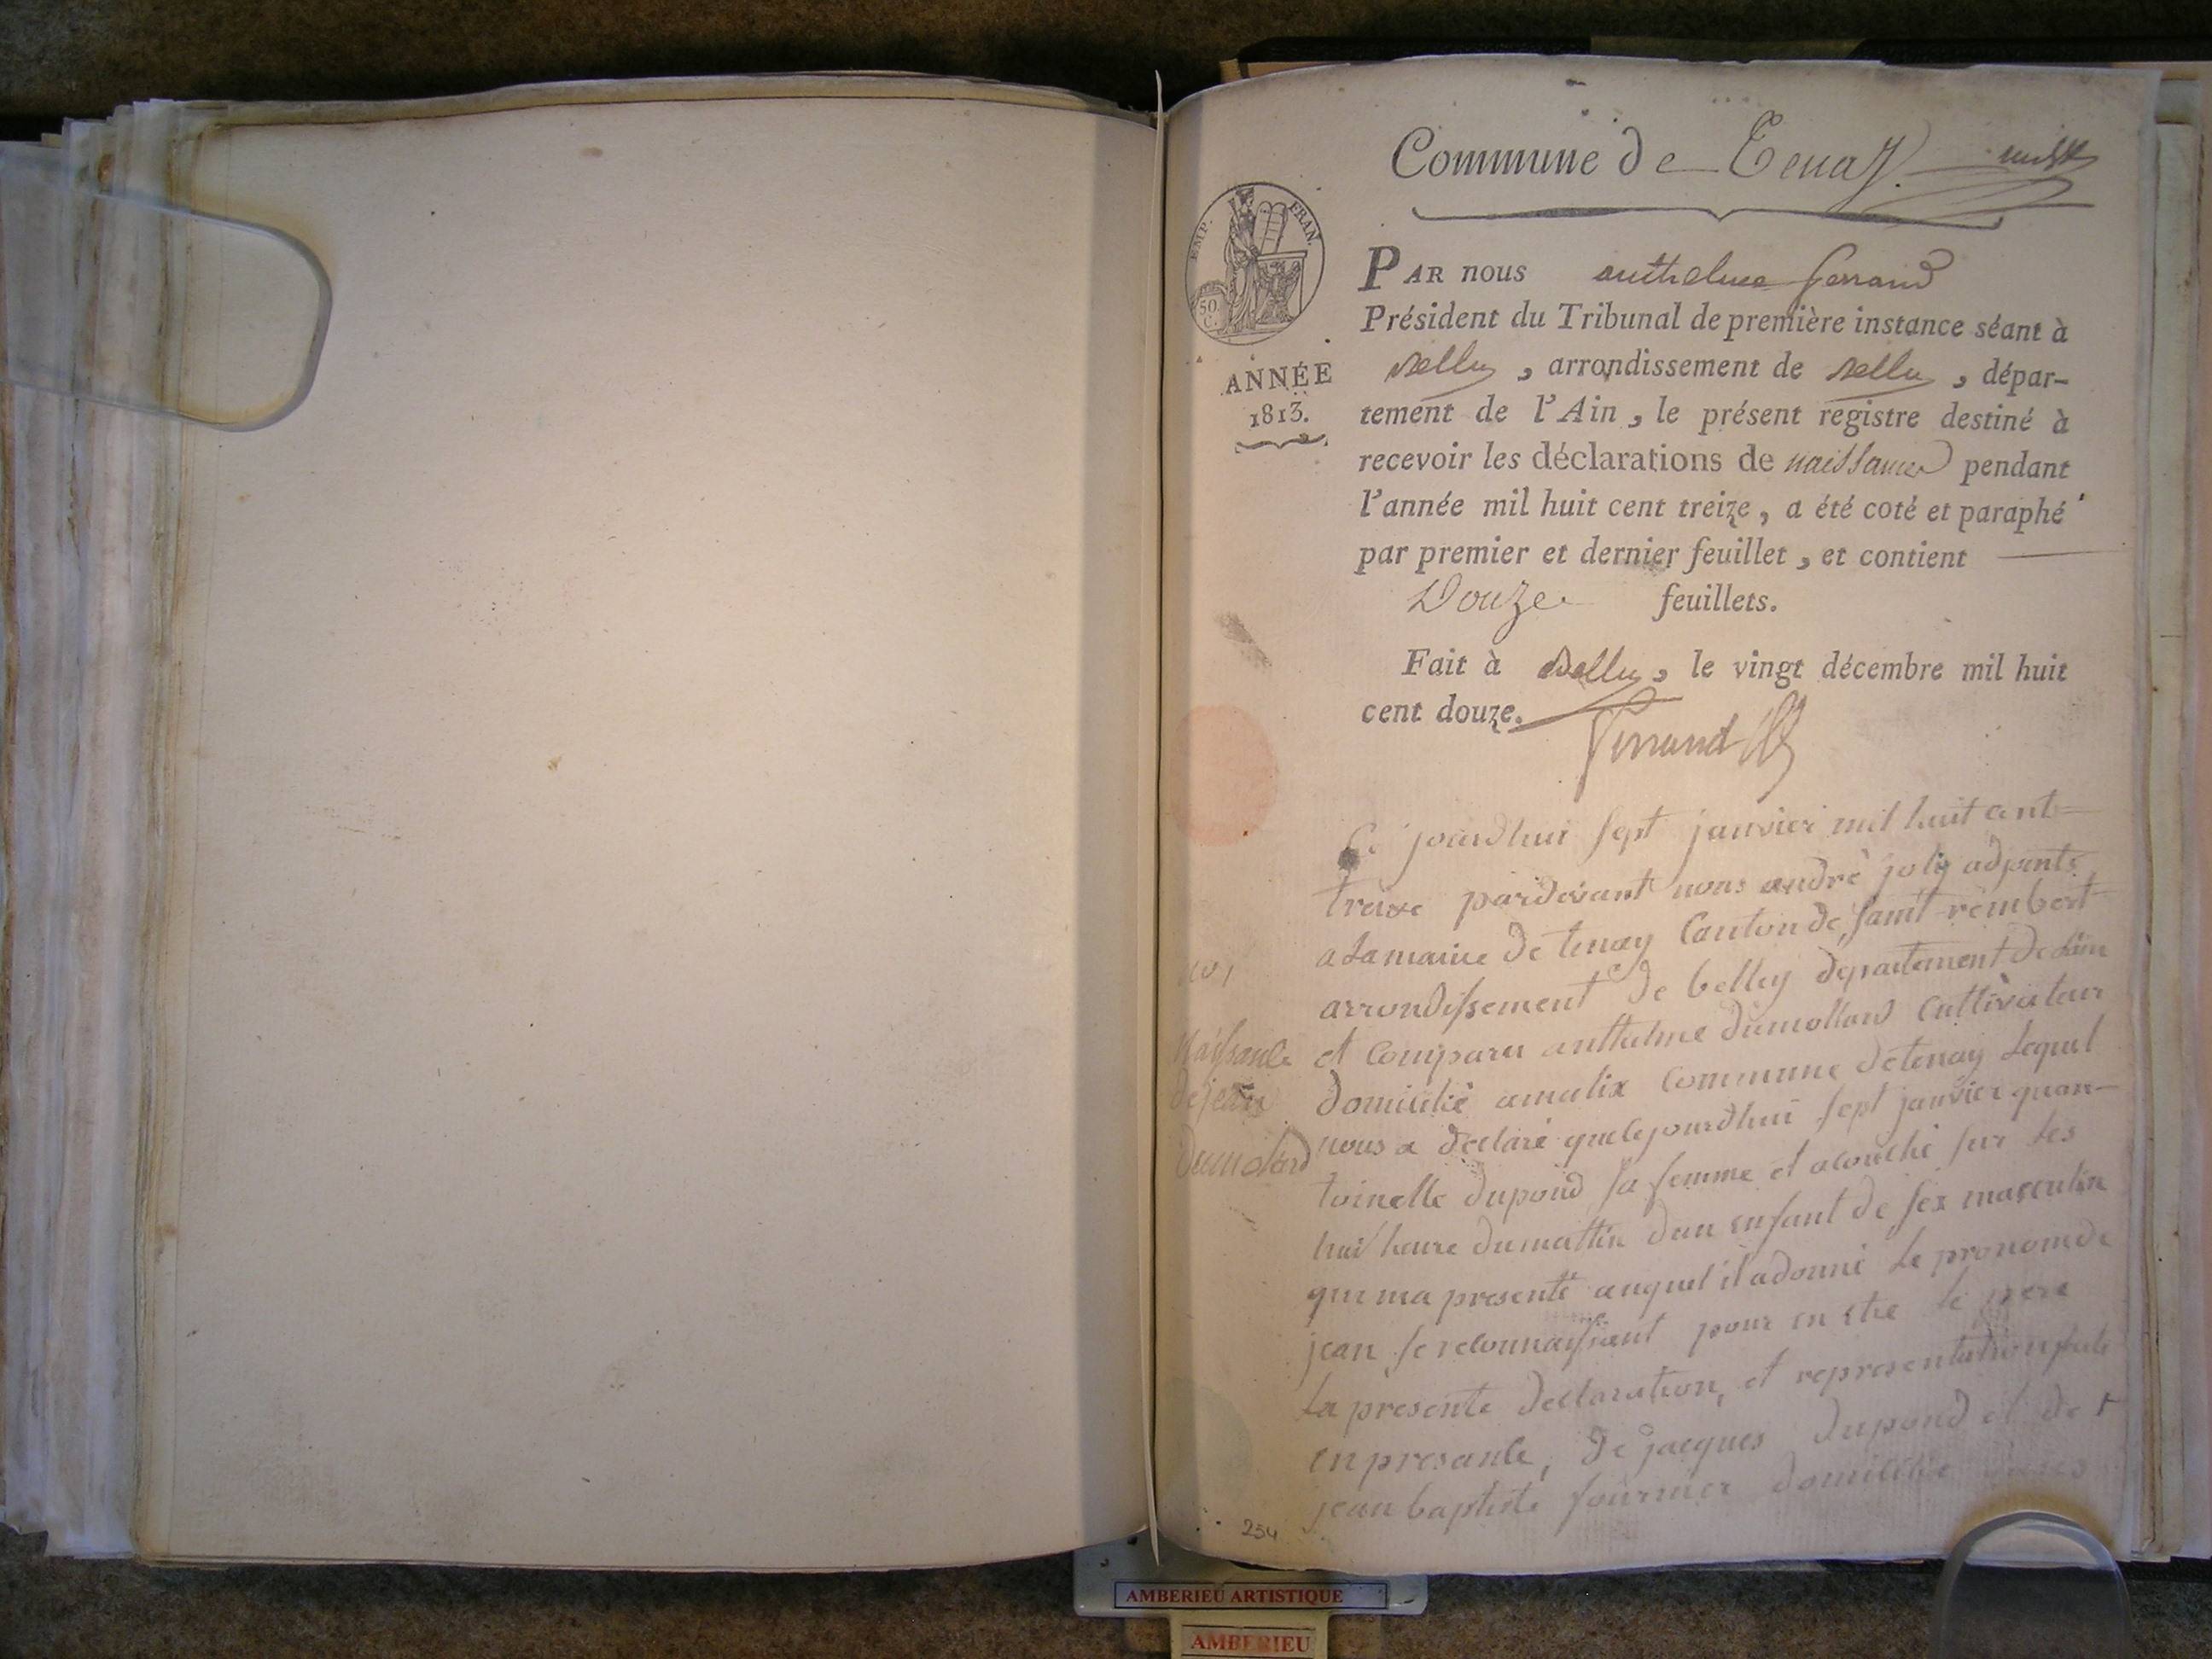 Commune de Tenay
EMP. FRAN.
50
C.
ANNÉE
1813.
PAR nous anthelme ferrand
Président du Tribunal de première instance séant à
Belley, arrondissement de Belley, dépar-
tement de l'Ain, le présent registre destiné à
recevoir les déclarations de naissance pendant
l'année mil huit cent treize, a été coté et paraphé
par premier et dernier feuillet, et contient
Douze feuillets.
Fait à Belley, le vingt décembre mil huit
cent douze.
Ferrand
Ce jourdhui sept janvier mil huit cent
treize pardevant nous andré joly adjoint
a la mairie de tenay Canton de saint rembert
arrondissement de belley departement de lain
Naissance
de jean
Dumolard
et comparu anthelme dumollard cultivateur
domicilié a malix commune de tenay lequel
nous a déclaré que cejourdhui sept janvier quan-
toinette dupond sa femme et acouché sur les
huit heure du mattin dun enfant de sex masculin
qui ma presenté auquel il a donné le pronom de
jean se reconnaissant pour en etre le pere
la présente declaration, et representation
en presance, de jacques dupond et de
jean baptiste fournier domicilié
254
AMBERIEU ARTISTIQUE
AMBERIEU